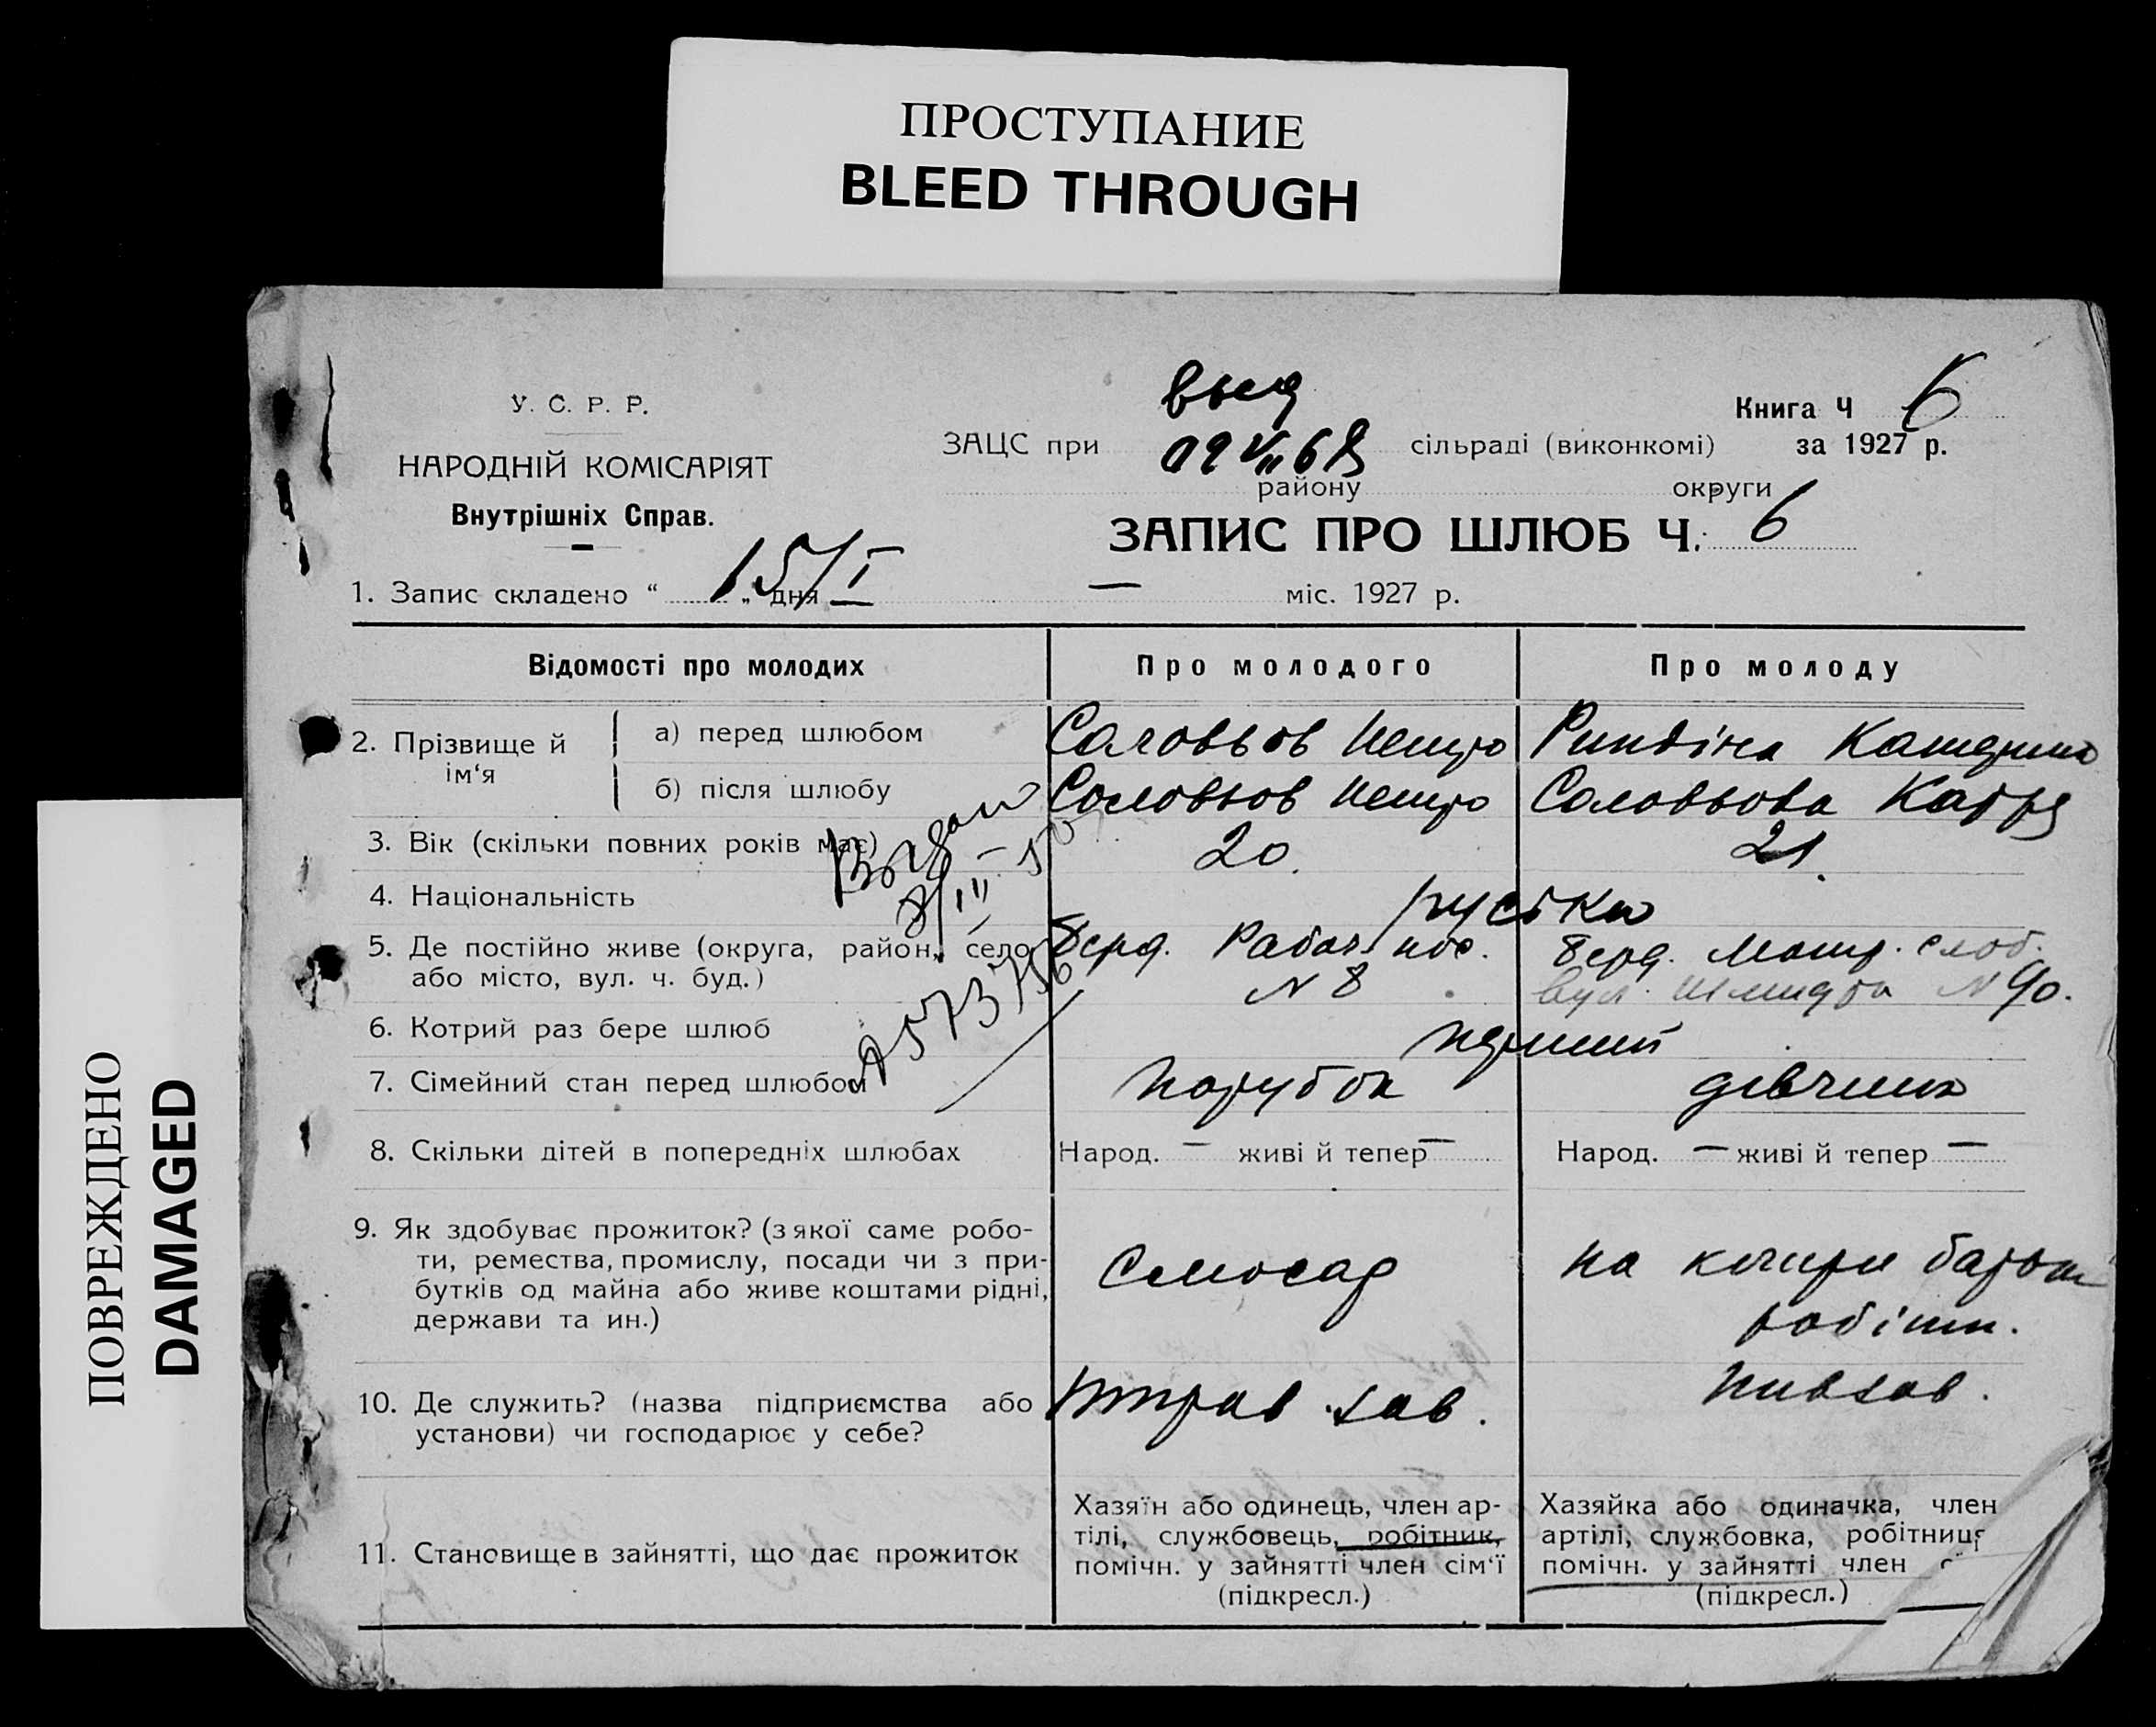 ПРОСТУПАНИЕ
BLEED THROUGH
ПОВРЕЖДЕНО
DAMAGED
У. С. Р. Р.
НАРОДНІЙ КОМІСАРІЯТ
Внутрішніх Справ.
выд
Книга Ч 6
ЗАЦС при сільраді (виконкомі) за 1927 р.
району округи
ЗАПИС ПРО ШЛЮБ Ч. 6
1. Запис складено “ 15/I „ дня — міс. 1927 р.
Відомості про молодих Про молодого Про молоду
2. Прізвище й ім‘я
а) перед шлюбом Соловьов Петро Риндіна Катерина
б) після шлюбу Соловьов Петро Соловьова Катря
3. Вік (скільки повних років має) 20. 21.
4. Національність руські
5. Де постійно живе (округа, район, село
або місто, вул. ч. буд.)
Берд. Рабоч. пос.
N 8
Берд. Матр. слоб.
вул. Шмидта N 90.
Выдано
A 573756
6. Котрий раз бере шлюб перший
7. Сімейний стан перед шлюбом парубок дівчина
8. Скільки дітей в попередніх шлюбах Народ. — живі й тепер — Народ. — живі й тепер —
9. Як здобуває прожиток? (з якої саме робо-
ти, ремества, промислу, посади чи з при-
бутків од майна або живе коштами рідні,
держави та ин.)
Слюсар
на
робітн.
10. Де служить? (назва підприємства або
установи) чи господарює у себе?
зав.
11. Становище в зайнятті, що дає прожиток
Хазяїн або одинець, член ар-
тілі, службовець, робітник,
помічн. у зайнятті член сім‘ї
(підкресл.)
Хазяйка або одиначка, член
артілі, службовка, робітниця
помічн. у зайнятті член
(підкресл.)